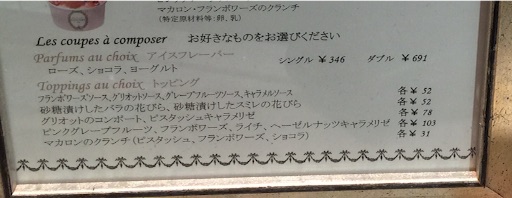 マカロン・フランボワーズのクランチ
(特定原材料等:卵、乳)
Les coupes à composer お好きなものをお選びください
Parfums au choix アイスフレーバー シングル ¥346 ダブル ¥691
ローズ、ショコラ、ヨーグルト
Toppings au choix トッピング
フランボワーズソース、グリオットソース、グレープフルーツソース、キャラメルソース 各¥ 52
砂糖漬けしたバラの花びら、砂糖漬けしたスミレの花びら 各¥ 52
グリオットのコンポート、ピスタッシュキャラメリゼ 各¥ 78
ピンクグレープフルーツ、フランボワーズ、ライチ、ヘーゼルナッツキャラメリゼ 各¥ 103
マカロンのクランチ(ピスタッシュ、フランボワーズ、ショコラ) 各¥ 31